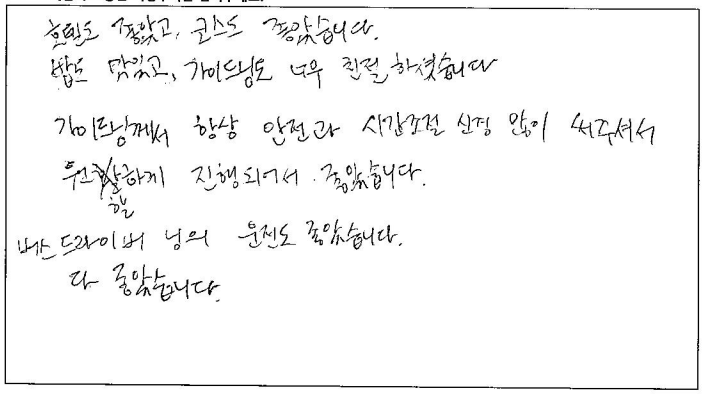 호텔도 좋았고, 코스도 좋았습니다.
밥도 맛있고, 가이드님도 너무 친절하셨습니다
가이드님께서 항상 안전과 시간조절 신경 많이 써주셔서
원할하게 진행되어서 좋았습니다.
버스 드라이버 님의 운전도 좋았습니다.
다 좋았습니다.